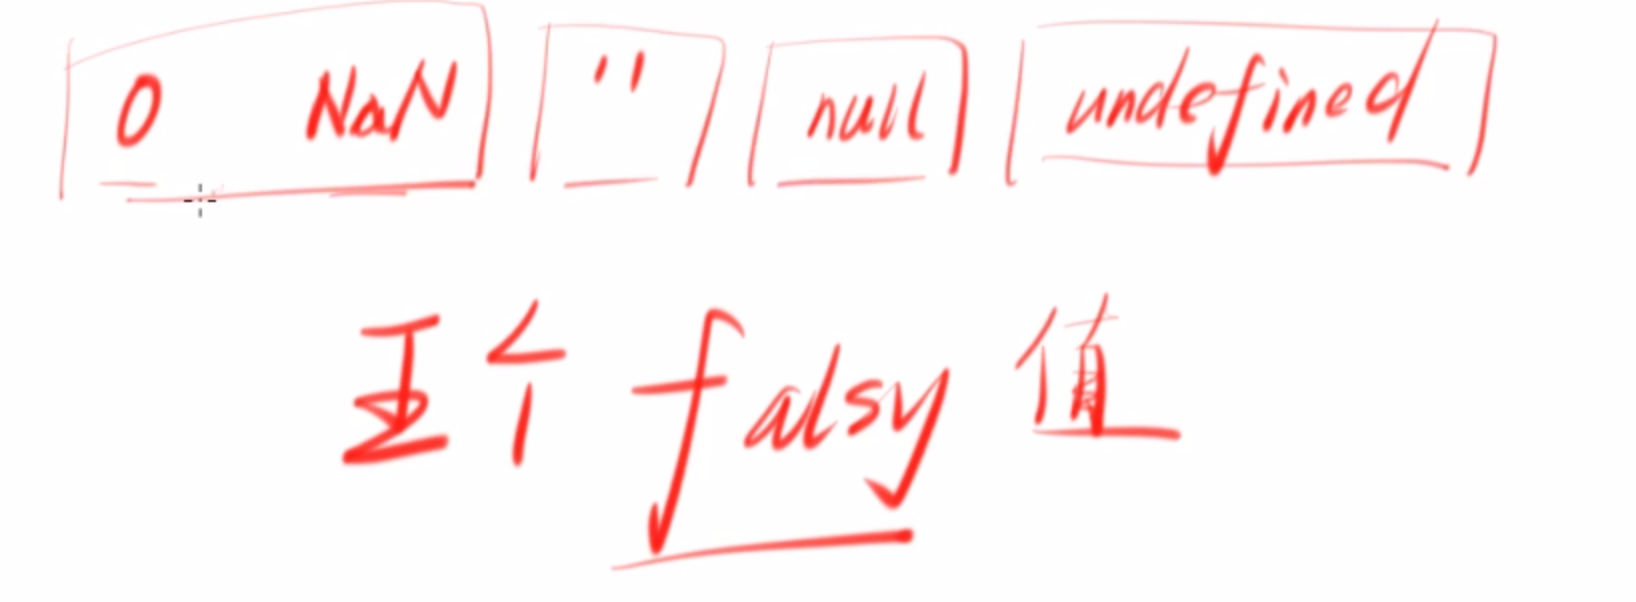 0 NaN '' null undefined
五个 falsy 值